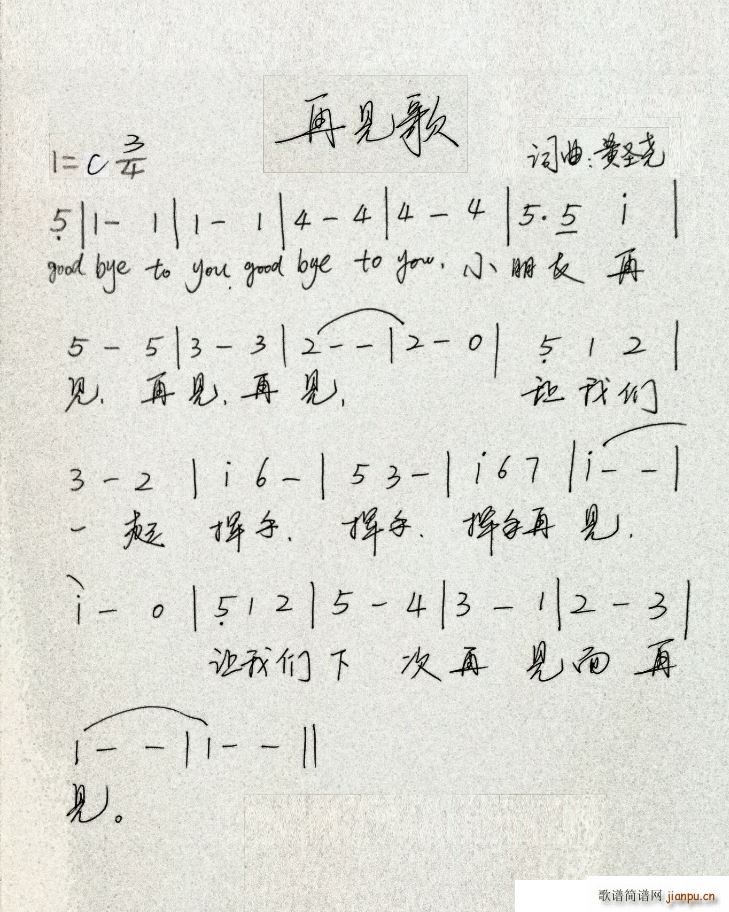 再见歌
1=C 3/4
词曲:黄圣尧
5̣ | 1 - 1 | 1 - 1 | 4 - 4 | 4 - 4 | 5· 5̲ i |
good bye to you. good bye to you. 小朋友 再
5 - 5 | 3 - 3 | 2 - - | 2 - 0 | 5̣ 1 2 |
见. 再见. 再见. 让我们
3 - 2 | i 6 - | 5 3 - | i 6 7 | i - - |
一起 挥手. 挥手. 挥手再见.
i - 0 | 5̣ 1 2 | 5 - 4 | 3 - 1 | 2 - 3 |
让我们下次再见面再
1 - - | 1 - - ||
见。
歌谱简谱网 jianpu.cn